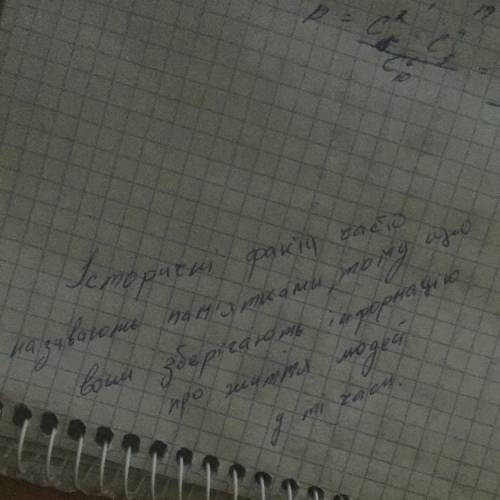 Історичні факти часто
називають пам'ятками, тому що
вони зберігають інформацію
про життя людей
у ті часи.